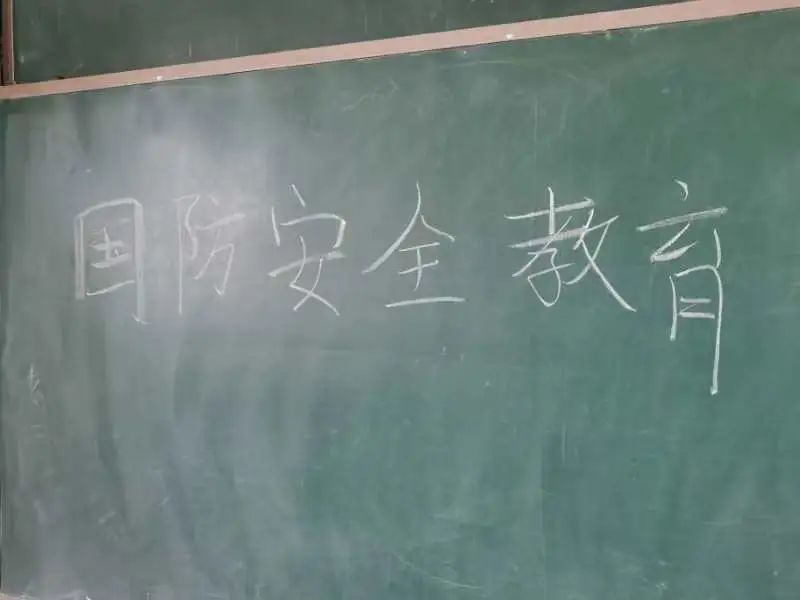 国防安全教育